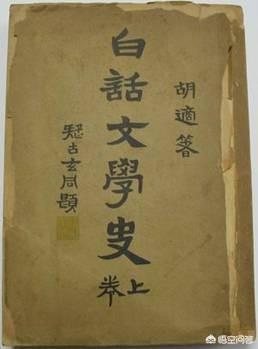 胡適箸
白話文學史
上卷
疑古玄同題
悟空问答